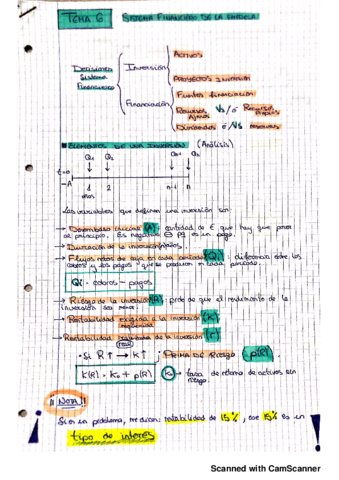 TEMA 6 SISTEMA FINANCIERO DE LA EMPRESA
Decisiones Sistema Financiero
Inversión
ACTIVOS
PROYECTOS INVERSIÓN
Financiación
Fuentes financiación
Recursos Ajenos Vs/ó Recursos Propios
Dividendos ó/Vs reservas
ELEMENTOS DE UNA INVERSIÓN (Análisis)
Q1 Q2 Qn-1 Qn
t=0
-A 1 2 n-1 n
años
Las variables que definen una inversión son:
→ Desembolso inicial (A): cantidad de € que hay que poner
al principio. Es negativo es un pago.
→ Duración de la inversión: Años.
→ Flujos netos de caja en cada periodo (Qi): diferencia entre los
cobros y los pagos que se producen en cada periodo.
Qi = cobros - pagos
→ Riesgo de la inversión (R), prob de que el rendimiento de la
inversión sea menor
→ Rentabilidad exigida a la inversión (K)
requerida
→ Rentabilidad de la inversión (r)
real
• Si R ↑ → K ↑ PRIMA DE RIESGO p(R)
K(R) = Ko + p(R)
Ko → tasa de retorno de activos sin
riesgo.
¡¡NOTA!!
Si en un problema, me dicen: rentabilidad de 15%, ese 15% es un
tipo de interés
Scanned with CamScanner